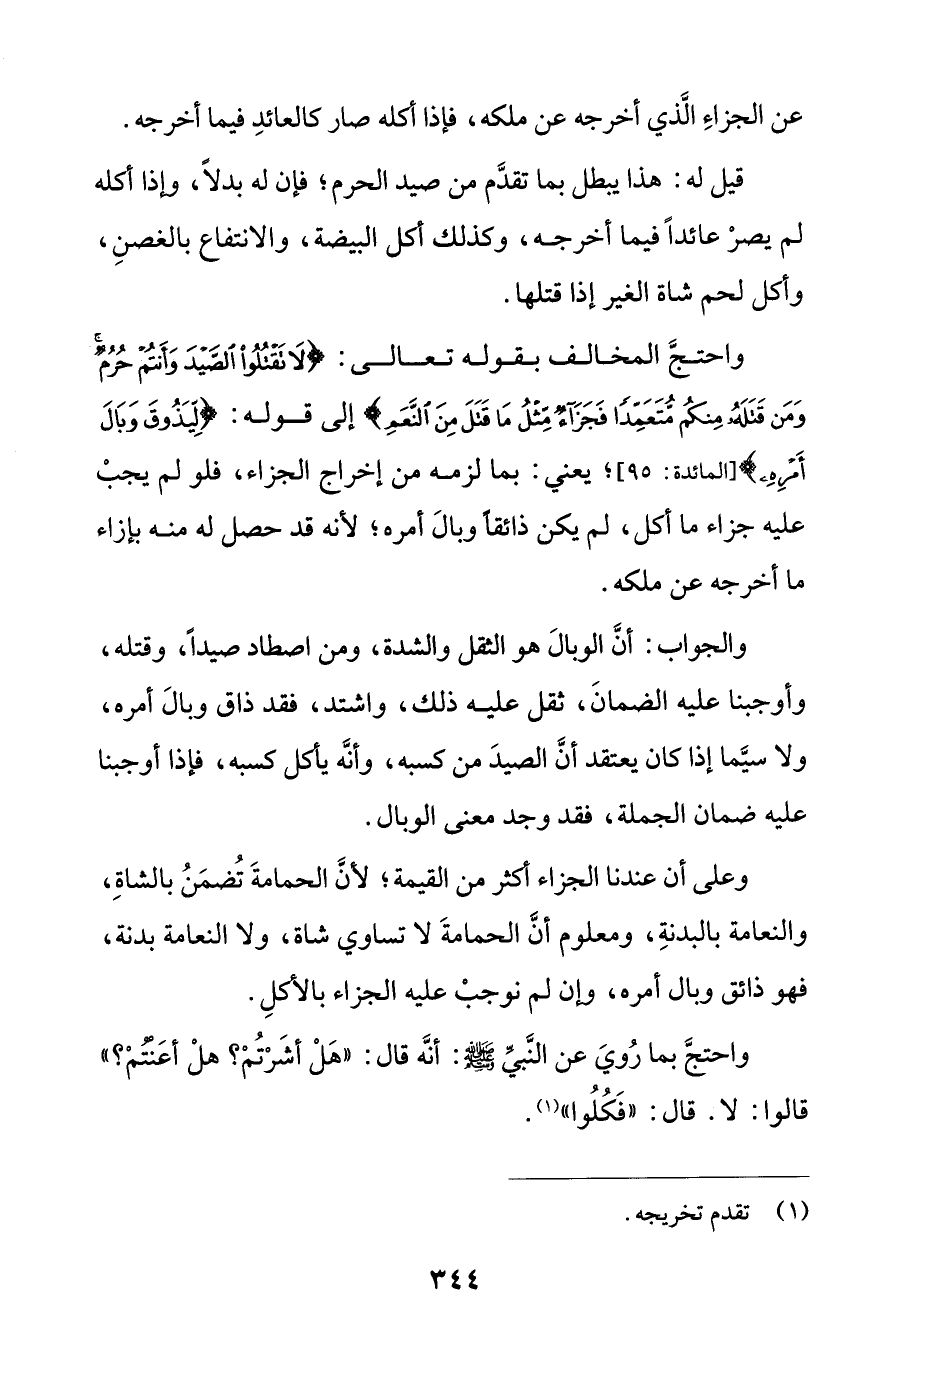 عن الجزاءِ الَّذي أخرجه عن ملكه، فإذا أكله صار كالعائدِ فيما أخرجه.
قيل له: هذا يبطل بما تقدَّم من صيد الحرم؛ فإن له بدلاً، وإذا أكله
لم يصرْ عائداً فيما أخرجـه، وكذلك أكل البيضة، والانتفاع بالغصنِ،
وأكل لحم شاة الغير إذا قتلها.
واحتـجَّ المخالـف بقولـه تعـالـى: ﴿لَا تَقْتُلُوا۟ ٱلصَّيْدَ وَأَنتُمْ حُرُمٌ ۚ
وَمَن قَتَلَهُۥ مِنكُم مُّتَعَمِّدًا فَجَزَآءٌ مِّثْلُ مَا قَتَلَ مِنَ ٱلنَّعَمِ﴾ إلى قـولـه: ﴿لِّيَذُوقَ وَبَالَ
أَمْرِهِۦ﴾ [المائدة: ٩٥]؛ يعني: بما لزمـه من إخراج الجزاء، فلو لم يجبْ
عليه جزاء ما أكل، لم يكن ذائقاً وبالَ أمره؛ لأنه قد حصل له منـه بإزاء
ما أخرجه عن ملكه.
والجواب: أنَّ الوبالَ هو الثقل والشدة، ومن اصطاد صيداً، وقتله،
وأوجبنا عليه الضمانَ، ثقل عليـه ذلك، واشتد، فقد ذاق وبالَ أمره،
ولا سيَّما إذا كان يعتقد أنَّ الصيدَ من كسبه، وأنَّه يأكل كسبه، فإذا أوجبنا
عليه ضمان الجملة، فقد وجد معنى الوبال.
وعلى أن عندنا الجزاء أكثر من القيمة؛ لأنَّ الحمامةَ تُضمَنُ بالشاةِ،
والنعامة بالبدنةِ، ومعلوم أنَّ الحمامةَ لا تساوي شاة، ولا النعامة بدنة،
فهو ذائق وبال أمره، وإن لم نوجبْ عليه الجزاء بالأكلِ.
واحتجَّ بما رُويَ عن النَّبيِّ ﷺ: أنَّه قال: «هَلْ أشَرْتُمْ؟ هلْ أعَنْتُمْ؟»
قالوا: لا. قال: «فَكُلُوا»(١).
(١) تقدم تخريجه.
٣٤٤